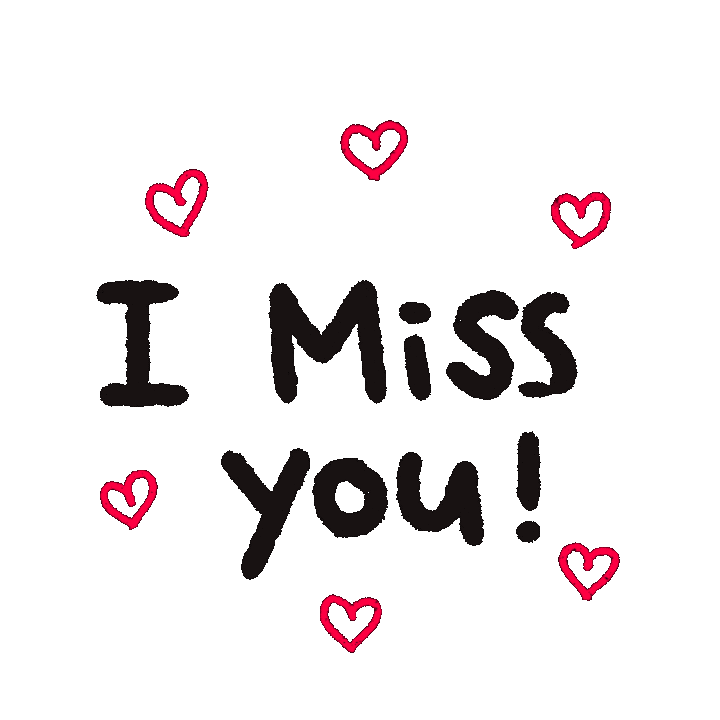 I Miss
you!